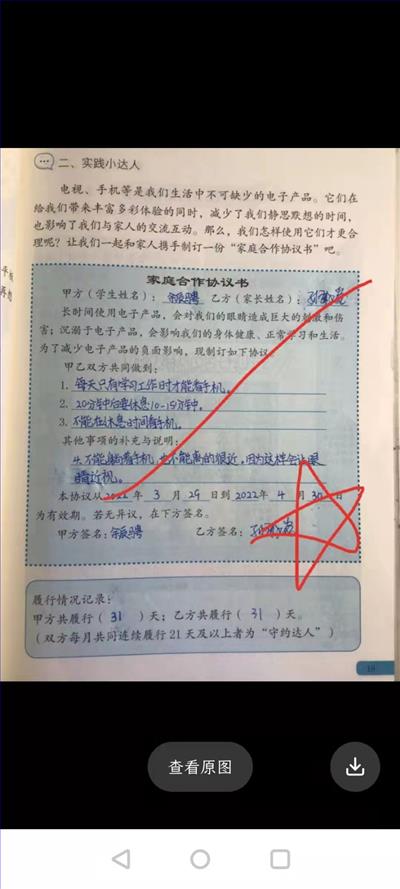 二、实践小达人
电视、手机等是我们生活中不可缺少的电子产品。它们在
给我们带来丰富多彩体验的同时，减少了我们静思默想的时间，
也影响了我们与家人的交流互动。那么，我们怎样使用它们才更合
理呢？让我们一起和家人携手制订一份“家庭合作协议书”吧。
家庭合作协议书
甲方（学生姓名）： 乙方（家长姓名）：
长时间使用电子产品，会对我们的眼睛造成巨大的刺激和伤
害；沉溺于电子产品，会影响我们的身体健康、正常学习和生活。
为了减少电子产品的负面影响，现制订如下协议。
甲乙双方共同做到：
1. 每天只有学习工作时才能看手机。
2. 20分钟后要休息10-15分钟。
3. 不能在休息时间看手机。
其他事项的补充与说明：
4.不能躺着看手机，也不能离的很近，因为这样会让眼
睛近视。
本协议从2022年3月29日到2022年4月30日
为有效期。若无异议，在下方签名。
甲方签名： 乙方签名：
履行情况记录：
甲方共履行（31）天；乙方共履行（31）天。
（双方每月共同连续履行21天及以上者为“守约达人”）
19
查看原图